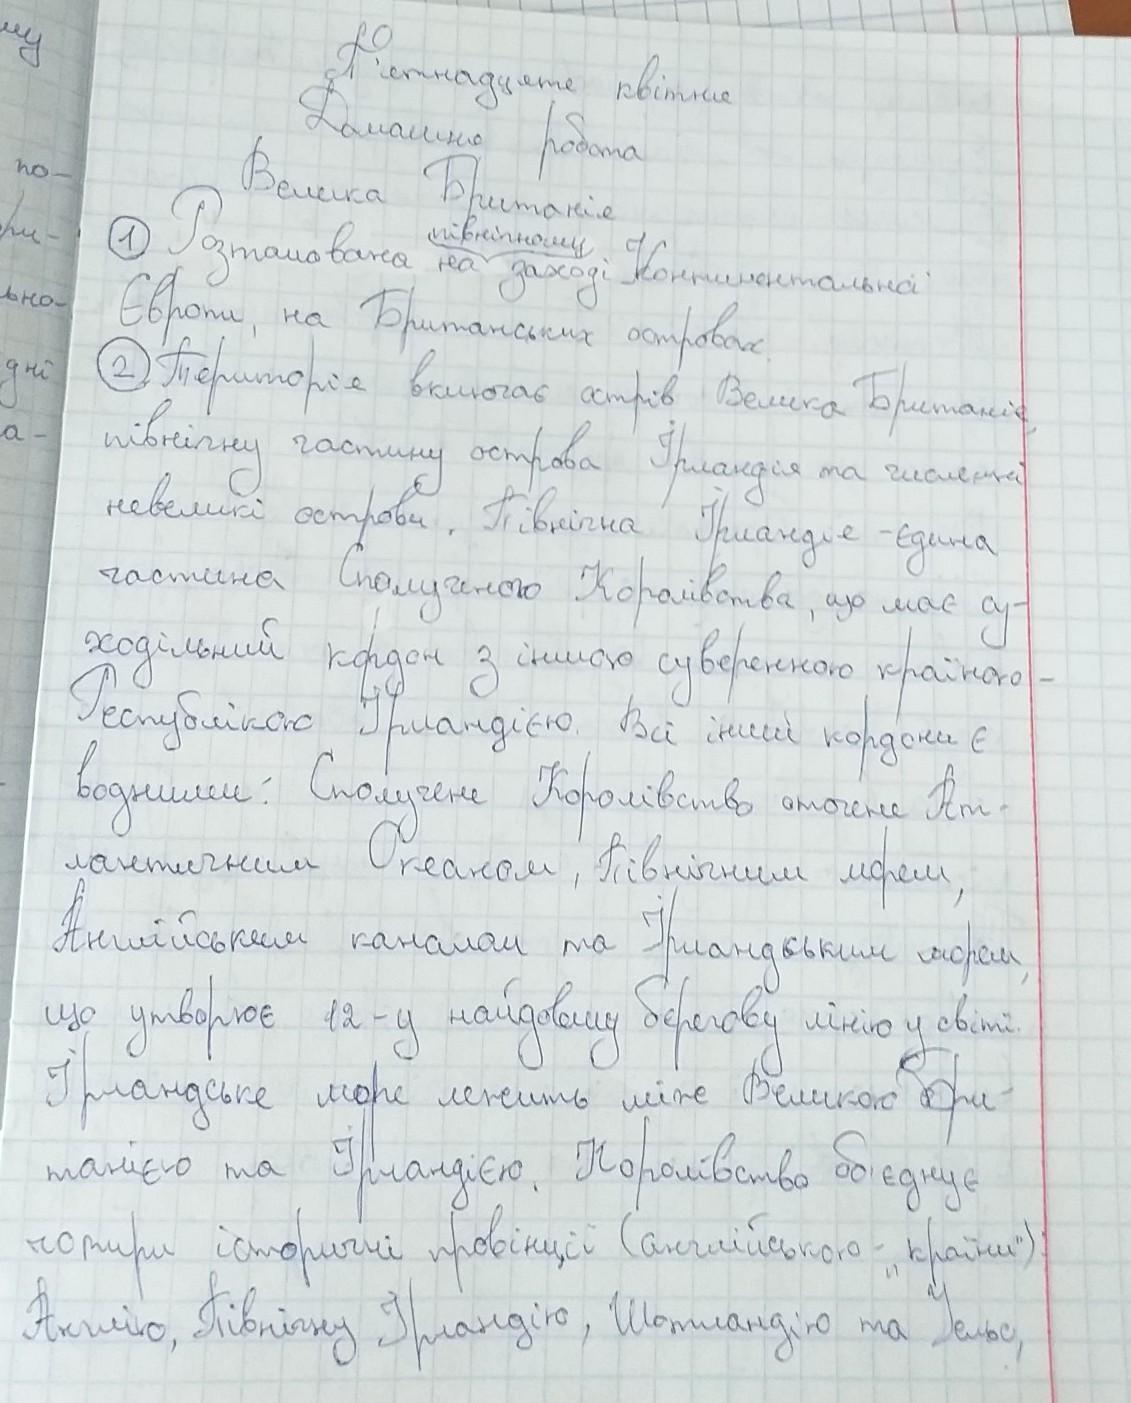 му
по-
ри-
льно-
дні
а-
П'ятнадцяте квітня
Домашня робота
Велика Британія
північному
① Розташована на заході Континентальної
Європи, на Британських островах.
② Територія включає острів Велика Британія,
північну частину острова Ірландія та численні
невеликі острови. Північна Ірландія - єдина
частина Сполученого Королівства, що має су-
ходільний кордон з іншою суверенною країною -
Республікою Ірландією. Всі інші кордони є
водними: Сполучене Королівство оточене Ат-
лантичним Океаном, Північним морем,
Англійським каналом та Ірландським морем,
що утворює 12-у найдовшу берегову лінію у світі.
Ірландське море лежить між Великою Бри-
танією та Ірландією. Королівство об'єднує
чотири історичні провінції (англійською - „країни"):
Англію, Північну Ірландію, Шотландію та Уельс,